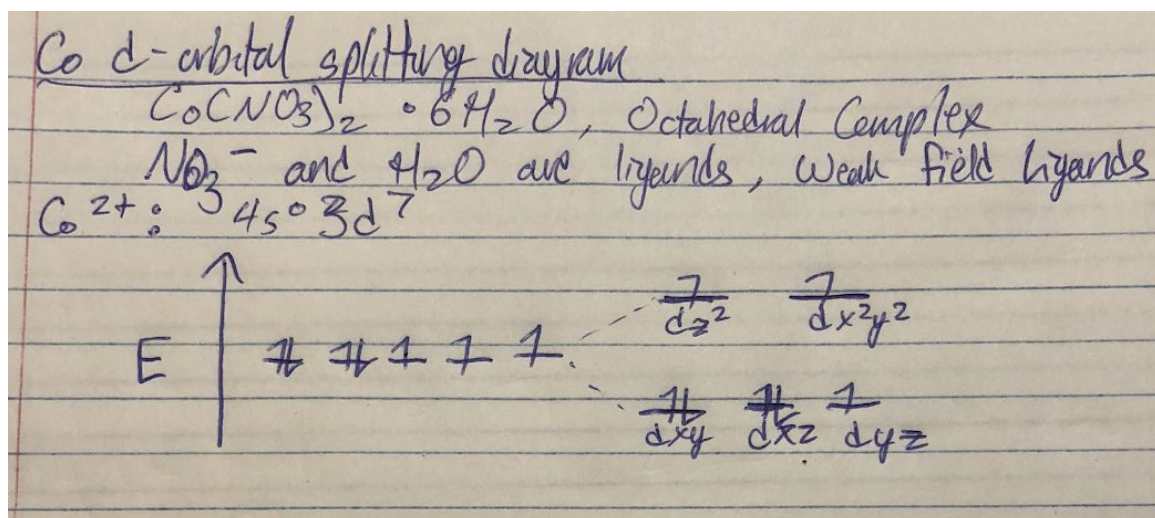 Co d-orbital splitting diagram
Co(NO3)2 • 6H2O, Octahedral Complex
NO3- and H2O are ligands, weak field ligands
Co2+: 4s0 3d7
E
dz2 dx2y2
dxy dxz dyz